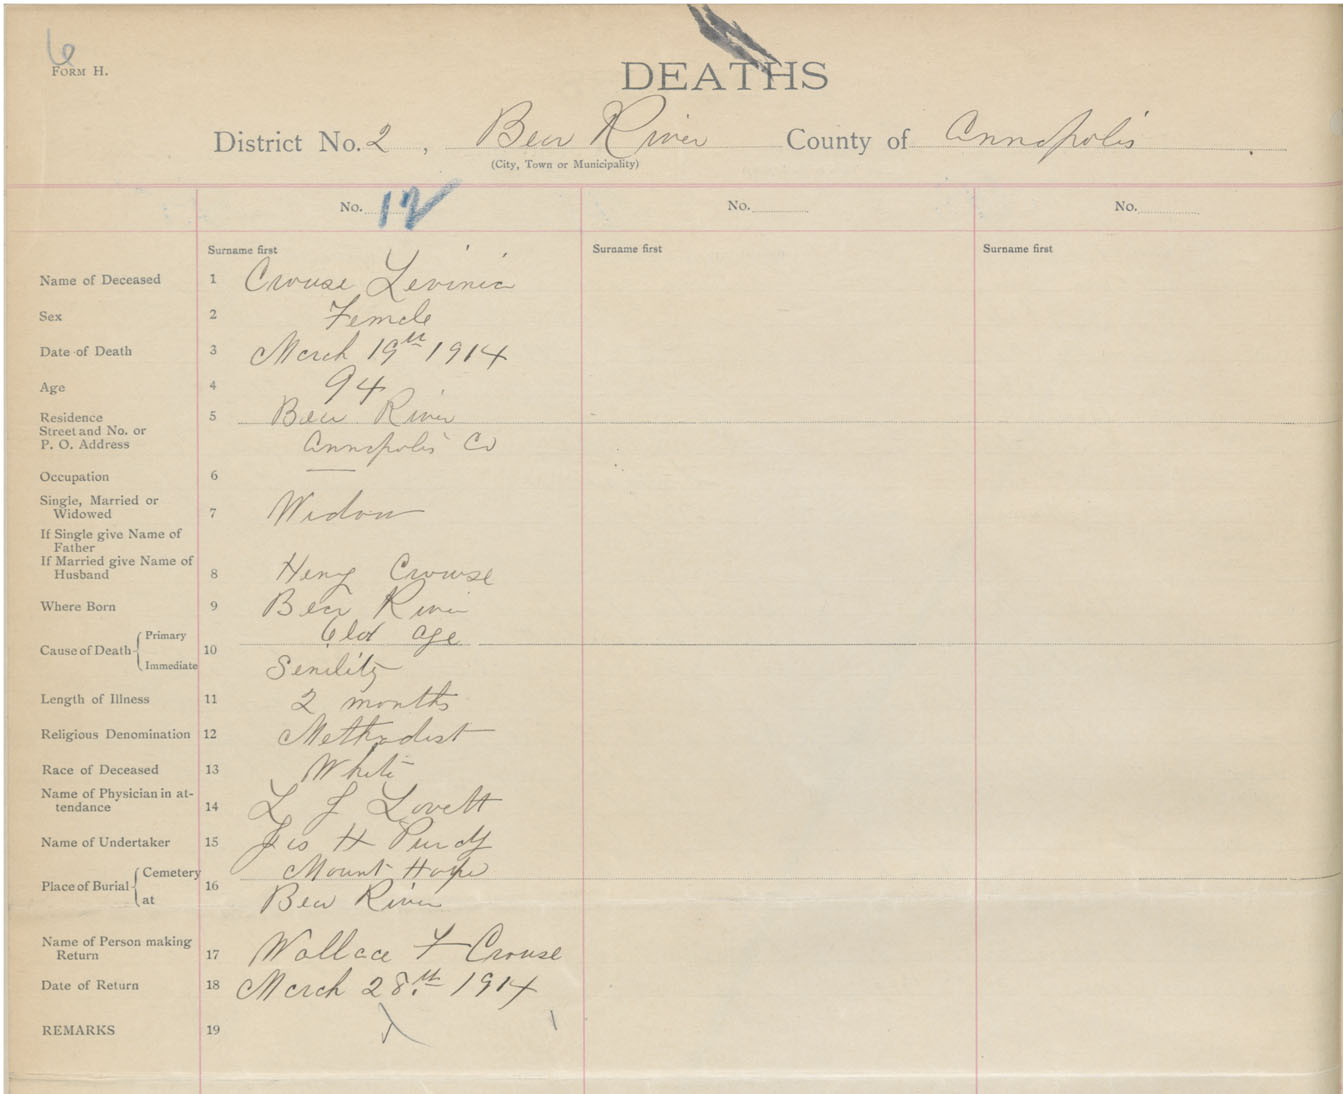 6
FORM H.
DEATHS
District No. 2, Bear River County of Annapolis
(City, Town or Municipality)
No. 12 No. No.
Surname first Surname first Surname first
Name of Deceased 1 Crouse Levinia
Sex 2 Female
Date of Death 3 March 19th 1914
Age 4 94
Residence 5 Bear River
Street and No. or
P. O. Address Annapolis Co
Occupation 6 —
Single, Married or
Widowed 7 Widow
If Single give Name of
Father
If Married give Name of
Husband 8 Henry Crouse
Where Born 9 Bear River
Cause of Death Primary 10 Old age
Immediate Senility
Length of Illness 11 2 months
Religious Denomination 12 Methodist
Race of Deceased 13 White
Name of Physician in at-
tendance 14 L J Lovett
Name of Undertaker 15 Jas H Purdy
Place of Burial Cemetery 16 Mount Hope
at Bear River
Name of Person making
Return 17 Wallace F Crouse
Date of Return 18 March 28th 1914
REMARKS 19